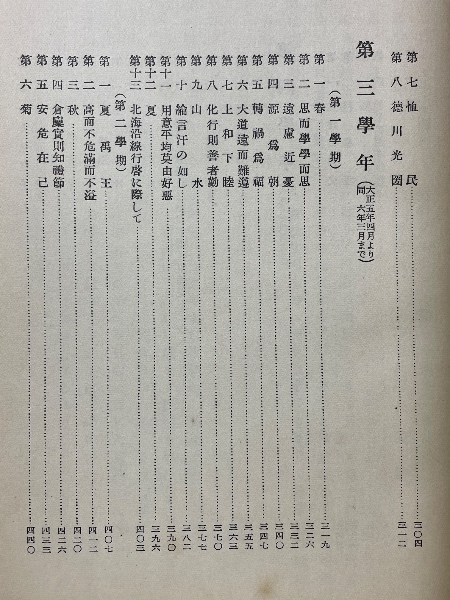 第七 恤民 三〇四
第八 德川光圀 三一二
第三學年 (大正五年四月より同六年三月まで)
(第一學期)
第一 春 三一九
第二 思而學學而思 三二六
第三 遠慮近憂 三三二
第四 源爲朝 三四〇
第五 轉禍爲福 三四七
第六 大道遠而難遵 三五五
第七 上和下睦 三六三
第八 化行則善者勸 三七〇
第九 山水 三七七
第十 綸言汗の如し 三八二
第十一 用意平均莫由好惡 三九〇
第十二 夏 三九六
第十三 北海沿線行啓に際して 四〇三
(第二學期)
第一 夏禹王 四〇七
第二 高而不危滿而不溢 四一二
第三 秋 四二〇
第四 倉廩實則知禮節 四二六
第五 安危在己 四三三
第六 菊 四四〇